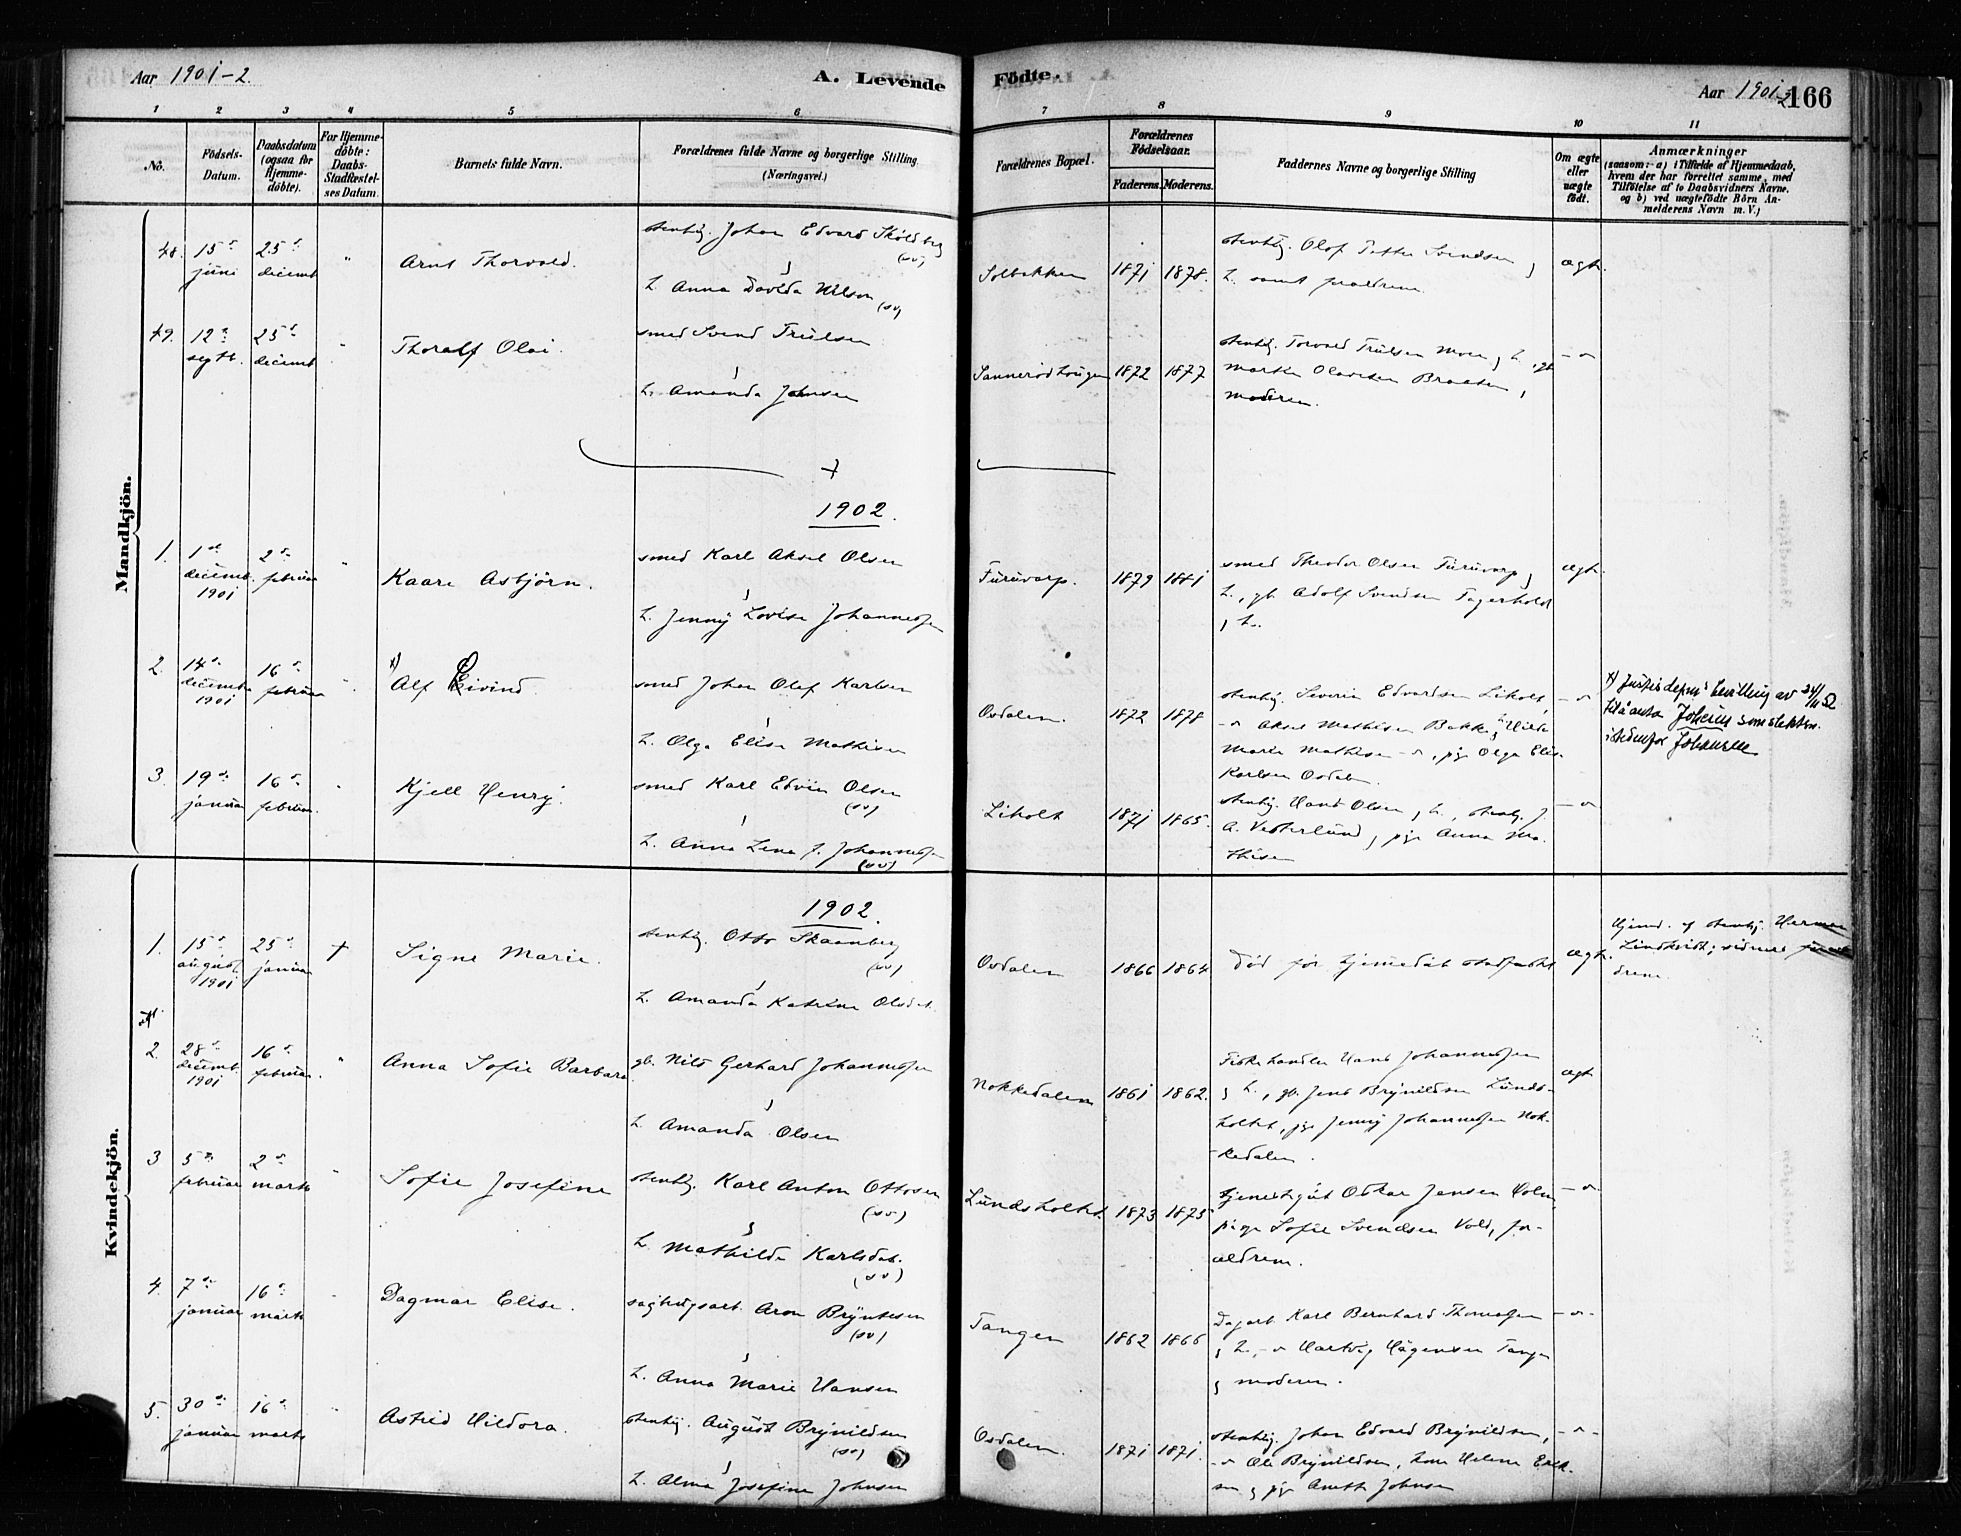 Aar 1901-2.
A. Levende
Födte.
Aar 1901-2
166
1 2 3 4 5 6 7 8 9 10 11
No.
Födsels-Datum.
Daabsdatum (ogsaa for Hjemmedöbte).
For Hjemmedöbte: Daabs-Stadfæstelses Datum.
Barnets fulde Navn.
Forældrenes fulde Navne og borgerlige Stilling.
(Næringsvei.)
Forældrenes Bopæl.
Forældrenes Födselsaar.
Faderens. Moderens.
Faddernes Navne og borgerlige Stilling
Om ægte eller uægte födt.
Anmærkninger
(saasom: a) i Tilfælde af Hjemmedaab,
hvem der har forrettet samme, med
Tilföielse af to Daabsvidners Navne.
og b) ved uægtefödte Börn Anmelderens Navn m. V.)
Mandkjön.
48. 15de juni 25de decemb " Arnt Thorvald. stenhg. Johan Edvard Sköldberg (sv)
& h. Anna Davida Nilson (sv)
Solbakken 1871 1878. stenhg. Olof Petter Svendsen &
h. samt forældrene. ægte.
49. 12te septb. 25de decemb " Thoralf Olai. smed Svend Trulsen
& h. Amanda Johnsen
Sannerödhougen 1872 1877 stenhg. Torvald Trulsen Moen & h.,
Marthe Olavesen Braaten,
moderen. -"-
1902.
1. 1ste decemb. 1901 2den februar " Kaare Asbjörn. smed Karl Aksel Olsen
& h. Jenny Lovise Johannessen
Furuvarp. 1879 1881 smed Theodor Olsen Furuvarp &
h., gb. Adolf Svendsen Fagerholt
& h. ægte.
2. 14de decemb 1901 16de februar " x) Alf Eivind smed Johan Olaf Karlsen
& h. Olga Elise Mathisen
Osdalen. 1872 1878 stenhg. Severin Edvardsen Liholt,
-"- Aksel Mathisen Bakke, Hilda
Marie Mathisen -"-, pige Olga Elis.
Karlsen Osdalen. -"-
x) Justisdepts' bevilling av 24/11 52
til å anta Johnsen som slektsn.
istedenfor Johansen
3. 19de januar 16de februar. " Kjell Henry. smed Karl Edvin Olsen (sv)
& h. Anna Lena f. Johannessen (sv)
Liholt 1871 1865. stenhg. Hans Olsen & h., stenhg. J.
A. Vesterlund & pige Anna Mathisen -"-
Kvindekjön.
1902.
1. 15de august 1901 25de januar + Signe Marie. stenhg. Otto Skaanberg (sv)
& h. Amanda Katrine Olsdat.
Osdalen 1866 1864. Död för hjemmedåb stadfæstet ægte.
Hjemd. af stenhg. Herman
Lindkvist; vidner forældrene.
2. 28de decemb. 1901 16de februar. " Anna Sofie Barbara gb. Nils Gerhard Johannessen
& h. Amanda Olsen
Nokkedalen 1861 1862. Fiskehandler Hans Johannessen
& h., gb. Jens Brynildsen Lundsholtet, pige Jenny Johannessen Nokkedalen. ægte
3 5te februar 2den marts " Sofie Josefine stenhg. Karl Anton Ottosen (sv.)
& h. Mathilde Karlsdat. (sv)
Lundsholtet. 1873 1875 tjenestegut Oskar Jensen Holm,
pige Sofie Svendsen Vold, forældrene. -"-
4. 7de januar 16de marts " Dagmar Elise. sagbrugsarb. Aron Bryntesen (sv)
& h. Anna Marie Hansen
Tangen 1862 1866 Dagarb. Karl Bernhard Thomassen
& h., -"- Hartvig Hågensen Tangen
& moderen. -"-
5. 30de januar 16de marts " Astrid Hildora. stenhg. August Brynildsen (sv)
& h. Alma Josefine Johnsen
Osdalen. 1871 1871. stenhg. Johan Edvard Brynildsen,
-"- Ole Brynildsen, kone Helene Eriksen & pige Anette Johnsen -"-